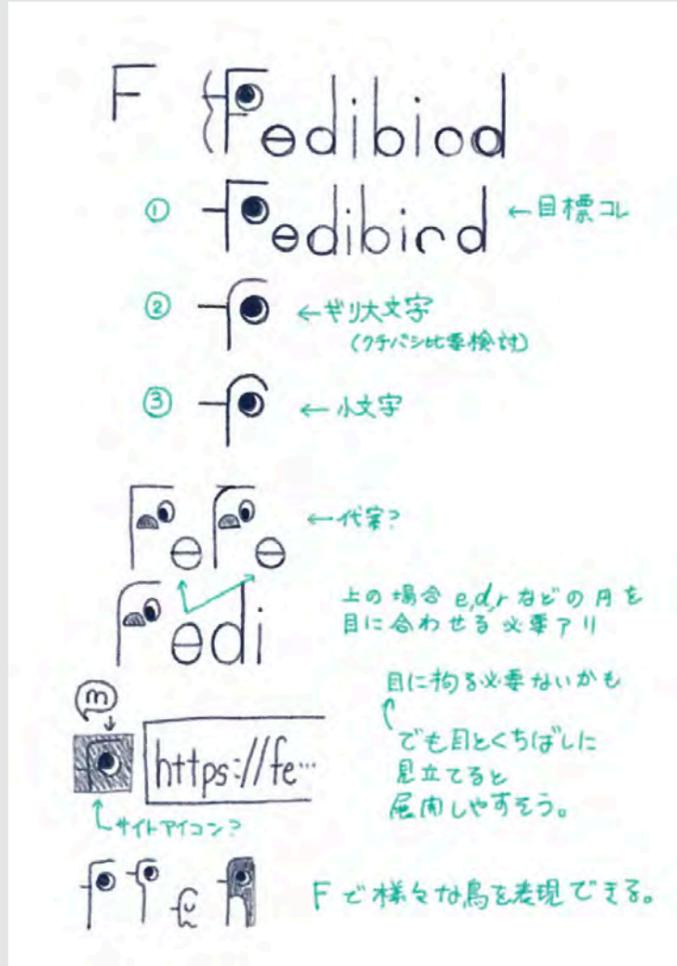 F Fedibiod
① Fedibird ←目標コレ
② F ←ギリ大文字
(クチバシ比率検討)
③ f ←小文字
F e F e ←代案?
Fedi
上の場合 e,d,rなどの円を
目に合わせる必要アリ
目に拘る必要ないかも
m
でも目とくちばしに
見立てると
展開しやすそう。
https://fe…
サイトアイコン?
Fで様々な鳥を表現できる。